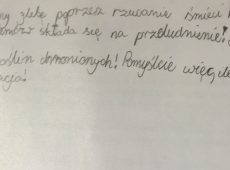 glebę poprzsz rzucanie śmieci
składa się na przeludnienie!
roślin chronionych! Pomyślcie więc, ile
acja!